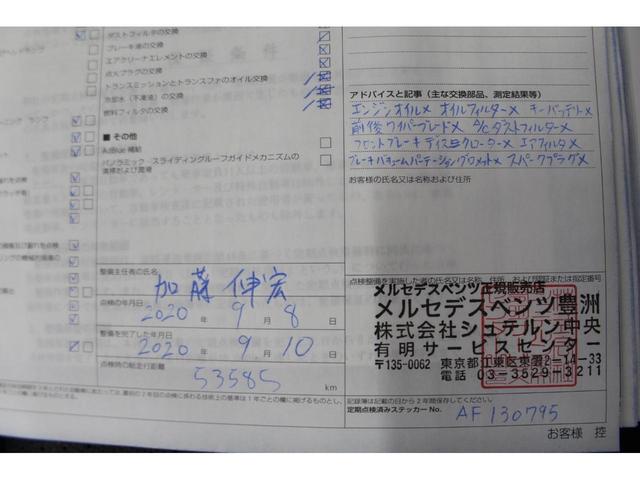 ダストフィルタの交換
ブレーキ液の交換
エアクリーナエレメントの交換
点火プラグの交換
トランスミッションとトランスファのオイル交換
冷却水(不凍液)の交換
燃料フィルタの交換
■ その他
AdBlue 補給
パノラミック・スライディングルーフガイドメカニズムの
清掃および潤滑
アドバイスと記事(主な交換部品、測定結果等)
エンジンオイル× オイルフィルター× キーバッテリー×
前後ワイパーブレード× A/Cダストフィルター×
フロントブレーキディスクローター× エアフィルタ×
スパークプラグ×
お客様の氏名又は名称および住所
整備主任者の氏名
加藤 伸宏
点検の年月日
2020 年 9 月 8 日
整備を完了した年月日
2020 年 9 月 10 日
点検時の総走行距離
53585 km
点検整備を実施した者の氏名又は名称、住所、および認証または指定番号
メルセデスベンツ正規販売店
メルセデスベンツ豊洲
株式会社シュテルン中央
有明サービスセンター
〒135-0062 東京都江東区東雲2-14-33
電話 03-3529-3211
記録簿は記載の日から2年間保存してください。
定期点検済みステッカー No. AF130795
お客様 控